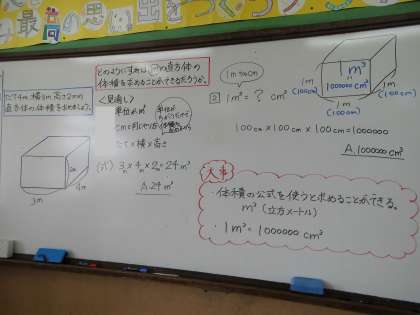 最高の思い出
たて4m、横3m、高さ2mの
直方体の体積を求めましょう。
3m
4m
2m
どのようにすれば
の直方体の
体積を求めることができるだろうか。
<見通し>
単位がm
たて×横×高さ
(式) 3×4×2=24m³
A.24m³
1m=100cm
② 1m³=?cm³
1m³
1000000cm³
1m
(100cm)
1m
(100cm)
1m
(100cm)
100cm×100cm×100cm=1000000
A.1000000cm³
大事
・体積の公式を使うと求めることができる。
m³(立方メートル)
・1m³=1000000cm³